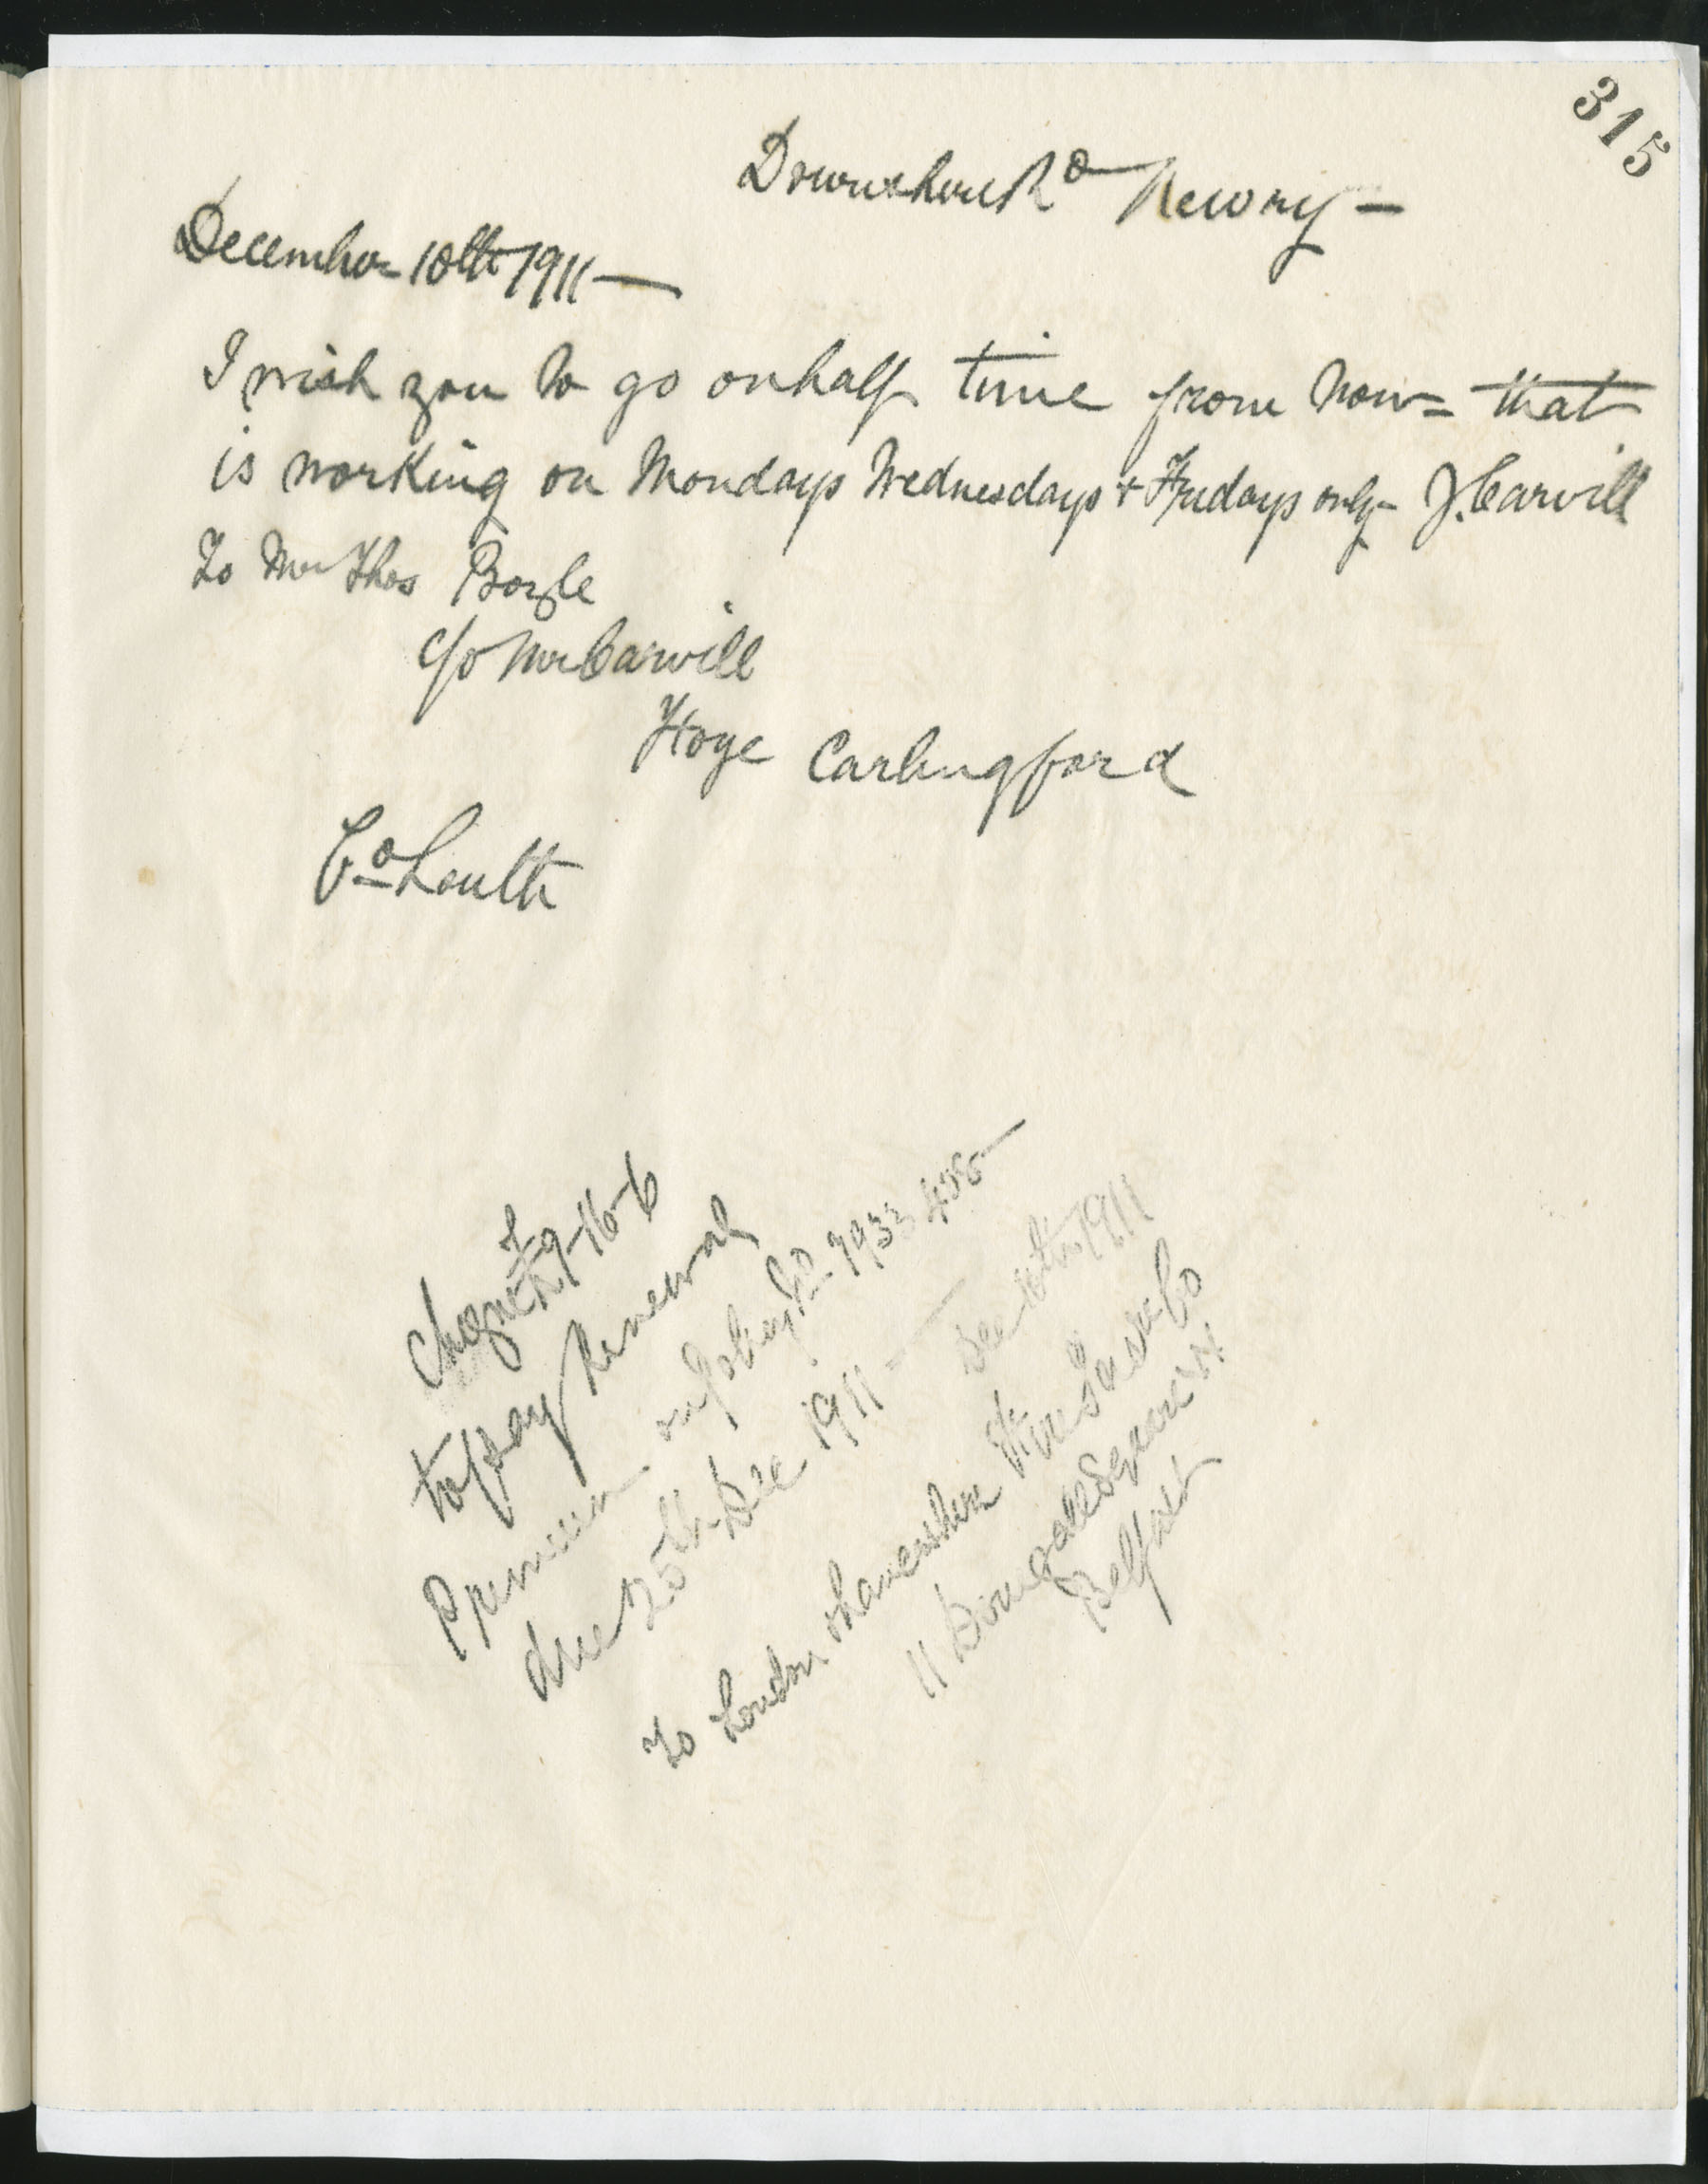 315
Downshire Rd Newry -
December 10th 1911 -
I wish you to go on half time from now = that
is working on Mondays Wednesdays + Fridays only - J. Carvill
To Mr Thos Boyle
c/o Mr Carvill
Carlingford
Co Louth
Cheque £9-16-6
to pay Renewal
Premium on Policy No 7933
due 25th Dec 1911 - Dec 10th 1911
To London & Lancashire Fire Insce Co
11 Donegall Square
Belfast